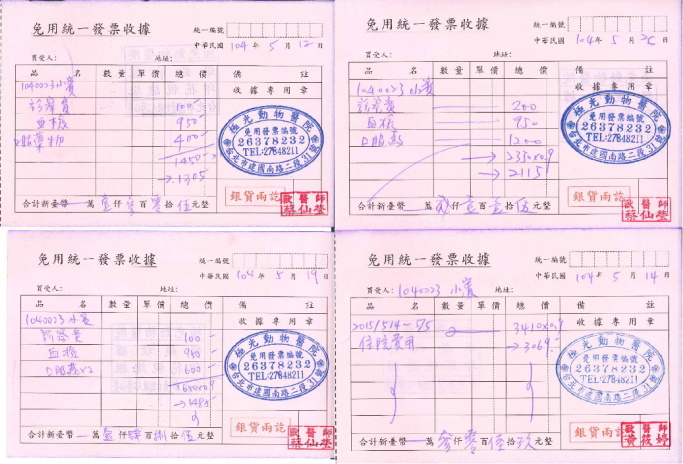 免用統一發票收據
統一編號
中華民國 104年 5月 12日
買受人： 地址：
品名 數量 單價 總價 備註
1040023小賓 收據專用章
診察費 100
血檢 950
口服藥物 400
1450
→1305
極光動物醫院
免用發票編號
26378232
TEL:27848211
台北市建國南路二段31號
銀貨兩訖
合計新臺幣 萬壹仟參百零拾伍元整
獸醫師
蔡仙瑩
免用統一發票收據
統一編號
中華民國 104年 5月 26日
買受人： 地址：
品名 數量 單價 總價 備註
1040023小賓 收據專用章
診察費 200
血檢 950
口服藥 1200
→2350x0.9
→2115
極光動物醫院
免用發票編號
26378232
TEL:27848211
台北市建國南路二段31號
銀貨兩訖
合計新臺幣 萬貳仟壹百壹拾伍元整
獸醫師
蔡仙瑩
免用統一發票收據
統一編號
中華民國 104年 5月 19日
買受人： 地址：
品名 數量 單價 總價 備註
1040023小賓 收據專用章
診察費 100
血檢 950
口服藥x2 600
1650x0.9
→1485
極光動物醫院
免用發票編號
26378232
TEL:27848211
台北市建國南路二段31號
銀貨兩訖
合計新臺幣 萬壹仟肆百捌拾伍元整
獸醫師
蔡仙瑩
免用統一發票收據
統一編號
中華民國 104年 5月 14日
買受人：1040023 小賓 地址：
品名 數量 單價 總價 備註
2015/5/14-5/5 3410x0.9 收據專用章
住院費用 →3069
極光動物醫院
免用發票編號
26378232
TEL:27848211
台北市建國南路二段31號
銀貨兩訖
合計新臺幣 萬參仟零百陸拾玖元整
獸醫師
黃筱婷